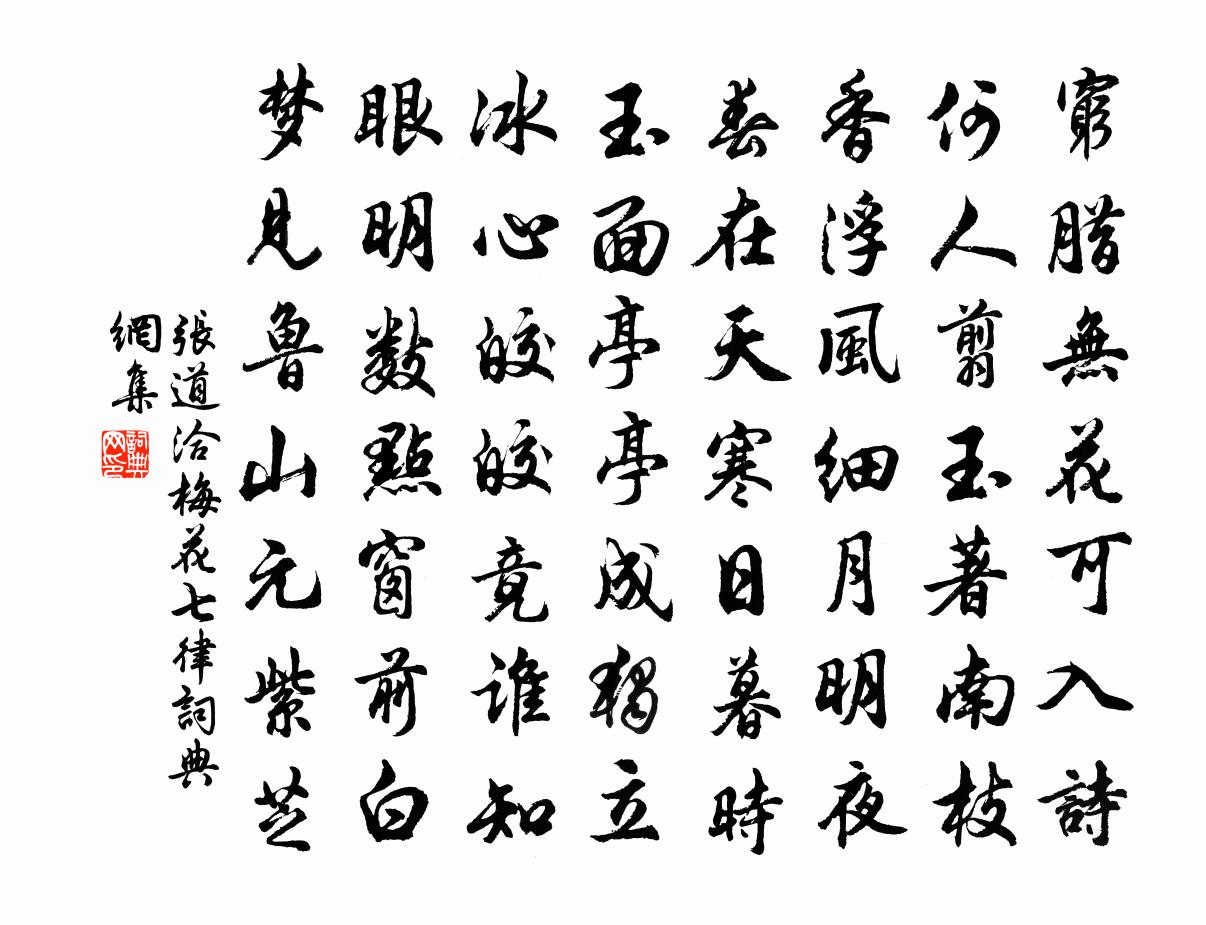 窮腊無花可入詩
何人翦玉著南枝
香浮風細月明夜
春在天寒日暮時
玉面亭亭成独立
冰心皎皎竟谁知
眼明數點窗前白
梦見魯山元紫芝
張道洽梅花七律詞典
網集
詞典
网印